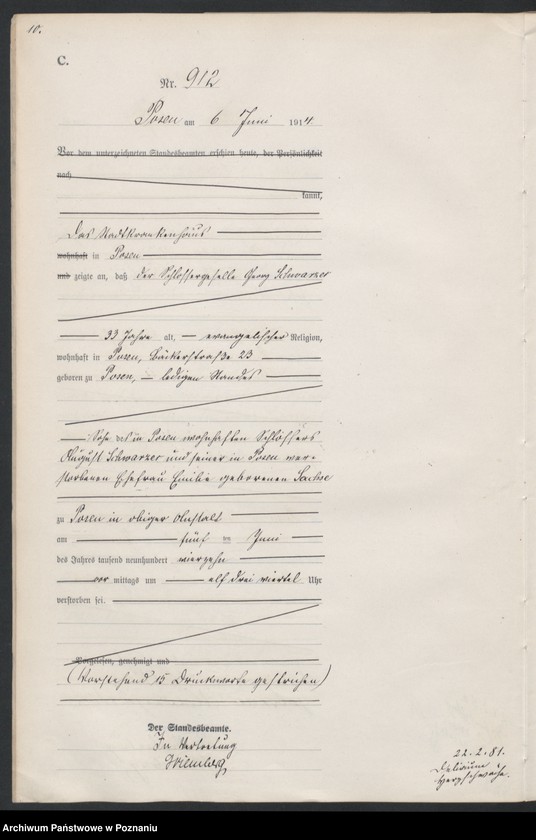 10.
C.
Nr. 912
Posen am 6 Juni 1914
Vor dem unterzeichneten Standesbeamten erschien heute, der Persönlichkeit
nach
kannt,
Das Stadtkrankenhaus
wohnhaft in Posen
und zeigte an, daß der Schlossergeselle Georg Schwarzer
33 Jahre alt, evangelischer Religion,
wohnhaft in Posen, Bäckerstraße 23
geboren zu Posen, ledigen Standes
Sohn des in Posen wohnhaften Schlossers
August Schwarzer und seiner in Posen ver-
storbenen Ehefrau Emilie geborenen Sachse
zu Posen in obiger Anstalt
am fünf ten Juni
des Jahres tausend neunhundert vierzehn
vor mittags um elf drei viertel Uhr
verstorben sei.
Vorgelesen, genehmigt und
(Vorstehend 15 Druckworte gestrichen)
Der Standesbeamte.
In Vertretung
22.2.81.
Delirium
Herzschwäche.
Archiwum Państwowe w Poznaniu